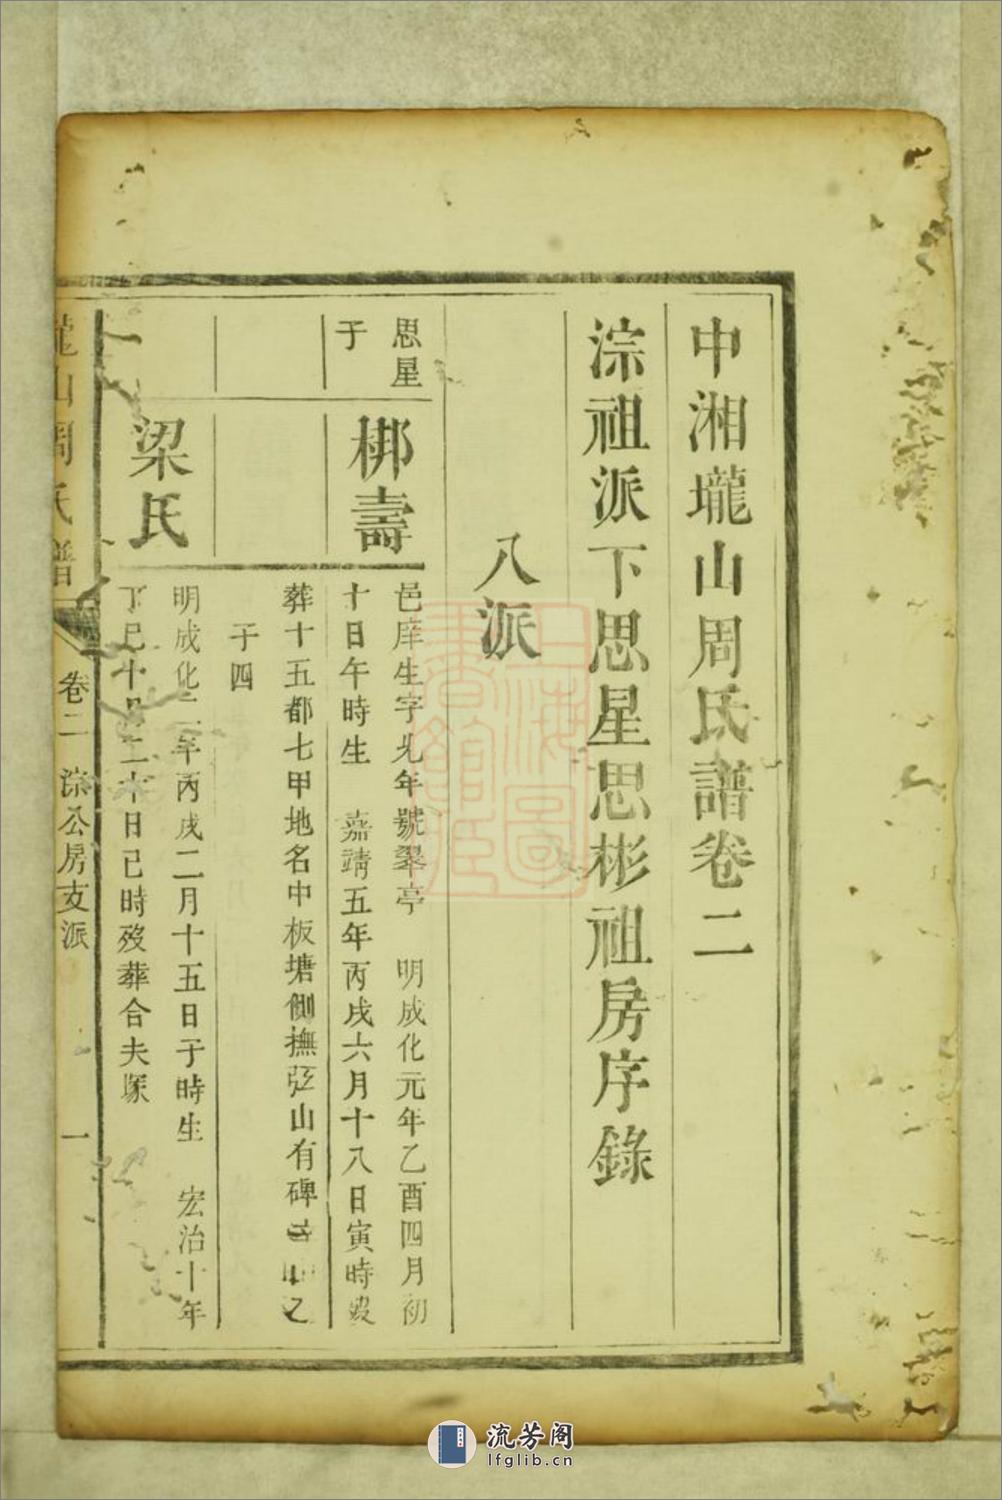 中湘壠山周氏譜卷二
淙祖派下思星思彬祖房序錄
八派
思星
子
梆壽
邑庠生字光年號翠亭 明成化元年乙酉四月初
十日午時生 嘉靖五年丙戌六月十八日寅時歿
葬十五都七甲地名中板塘側撫茲山有碑
子四
梁氏
明成化二年丙戌二月十五日子時生 宏治十年
丁巳十月二十日巳時歿葬合夫塚
山周氏譜
卷二 淙公房支派
一
上海圖書館藏
流芳阁
lfglib.cn